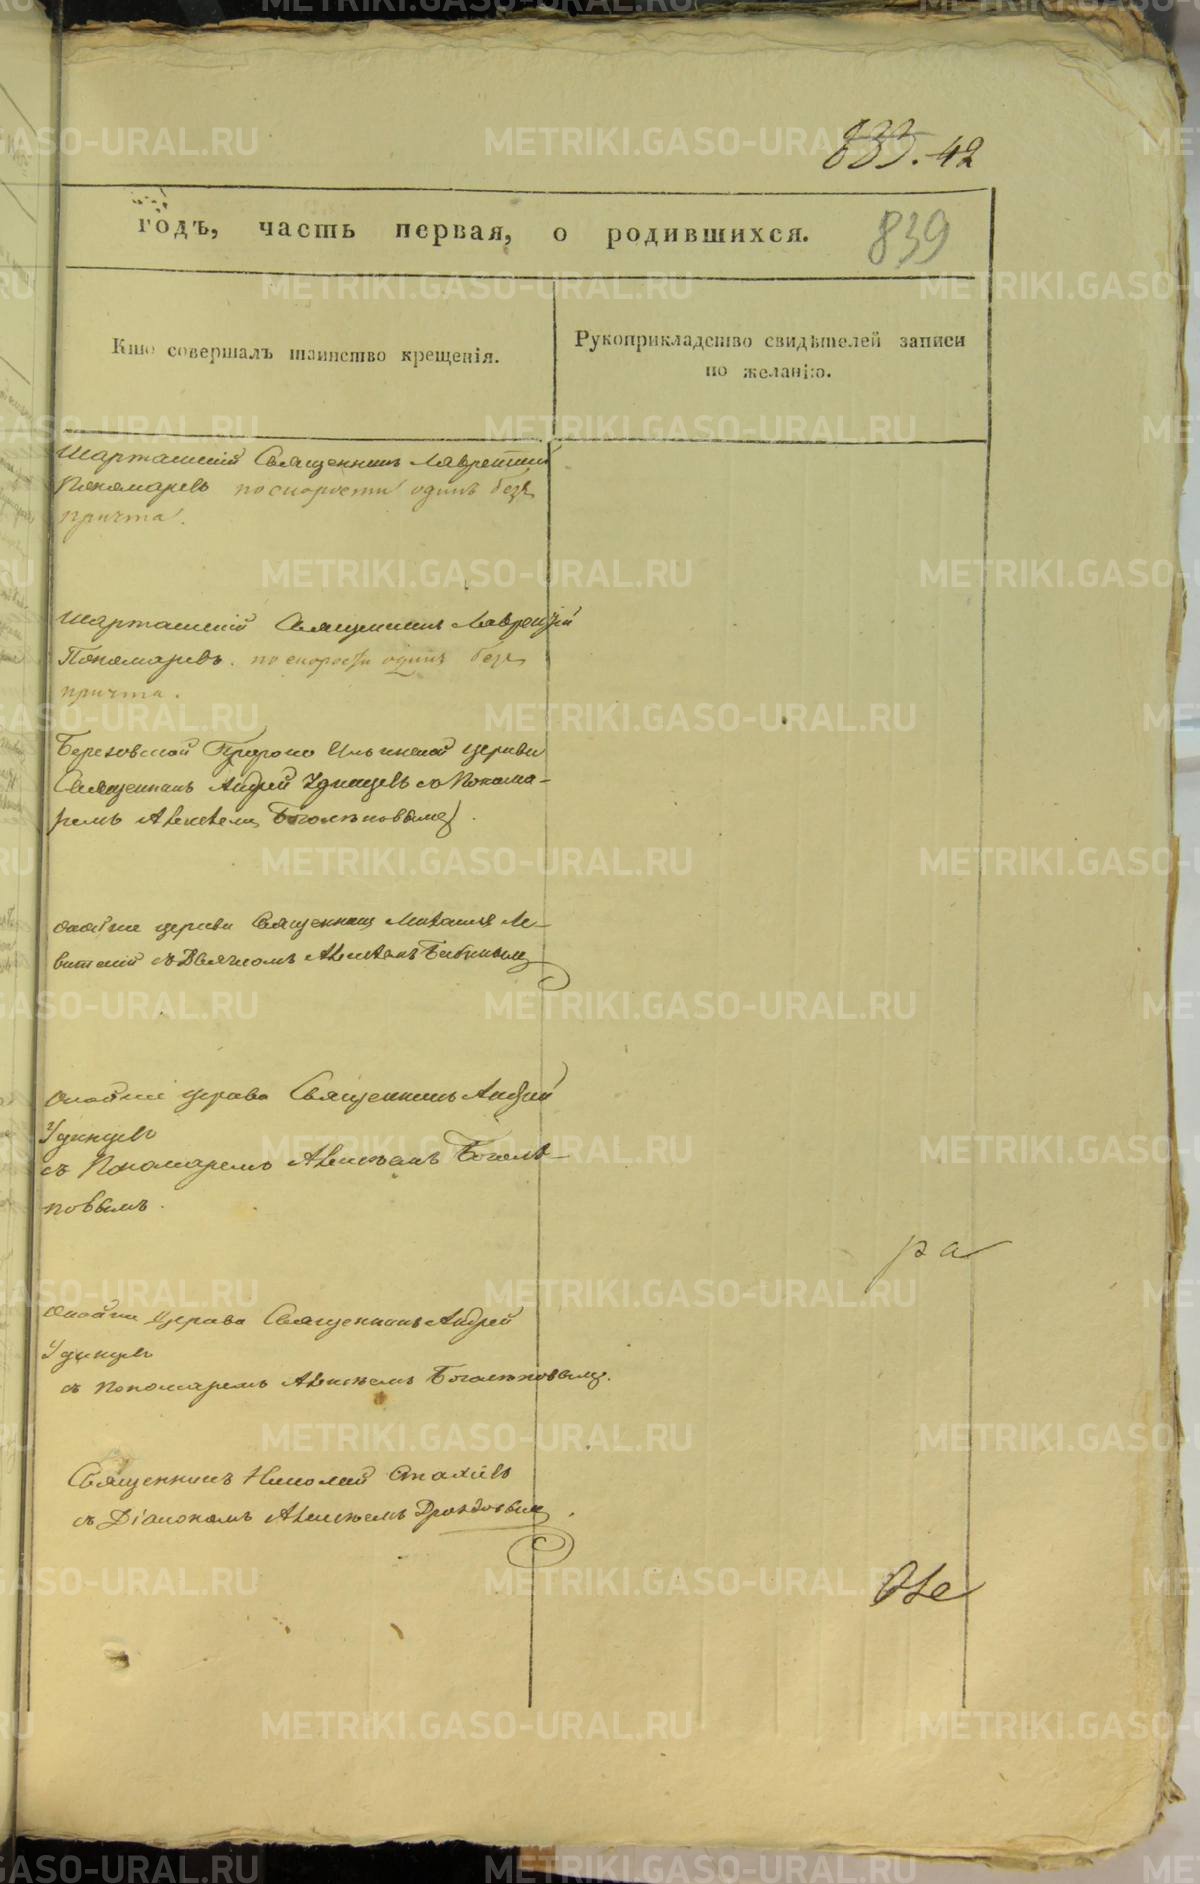 833. 42
годъ, часть первая, о родившихся.
839
Кто совершалъ таинство крещенія.
Рукоприкладство свидѣтелей записи
по желанію.
Шарташскій Священникъ Лаврентий
Пономаревъ по скорости одинъ безъ
причта.
Шарташскій Священникъ Лаврентій
Пономаревъ. по скорости одинъ безъ
причта.
Березовской Пророко Ильинской церкви
Священникъ Андрей Удинцевъ съ Понома-
ремъ Алексѣемъ Боголѣповымъ.
церкви Священникъ Михаилъ Ле-
витскій съ Дьячкомъ Алексѣемъ Бабинымъ
церкви Священникъ Андрей
Удинцевъ
съ Пономаремъ Алексѣемъ Боголѣ-
повымъ.
церкви Священникъ Андрей
Удинцевъ
съ Пономаремъ Алексѣемъ Боголѣповымъ.
Священникъ Николай
съ Діакономъ Алексѣемъ Дроздовымъ.
ра
METRIKI.GASO-URAL.RU